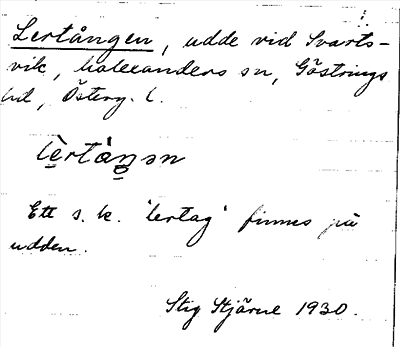 Lertången, udde vid Svarts-
vik, Halexanders sn, Göstrings
hd, Österg. l.
lèrtåŋən
Ett s.k. 'lertag' finnes på
udden.
Stig Stjärne 1930.